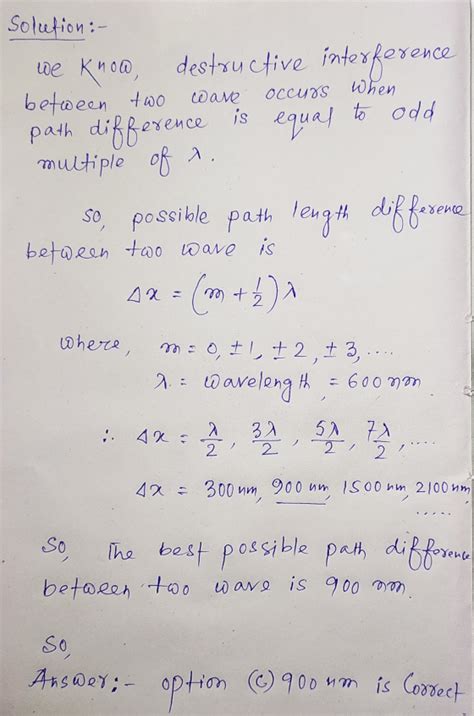 Solution:-
we know, destructive interference
between two wave occurs when
path difference is equal to odd
multiple of λ.
so, possible path length difference
between two wave is
Δx = (m + 1/2) λ
where, m = 0, ±1, ±2, ±3, ....
λ = wavelength = 600 nm
∴ Δx = λ/2, 3λ/2, 5λ/2, 7λ/2, ....
Δx = 300 nm, 900 nm, 1500 nm, 2100 nm,
.....
So, The best possible path difference
between two wave is 900 nm.
So,
Answer:- option (C) 900 nm is Correct